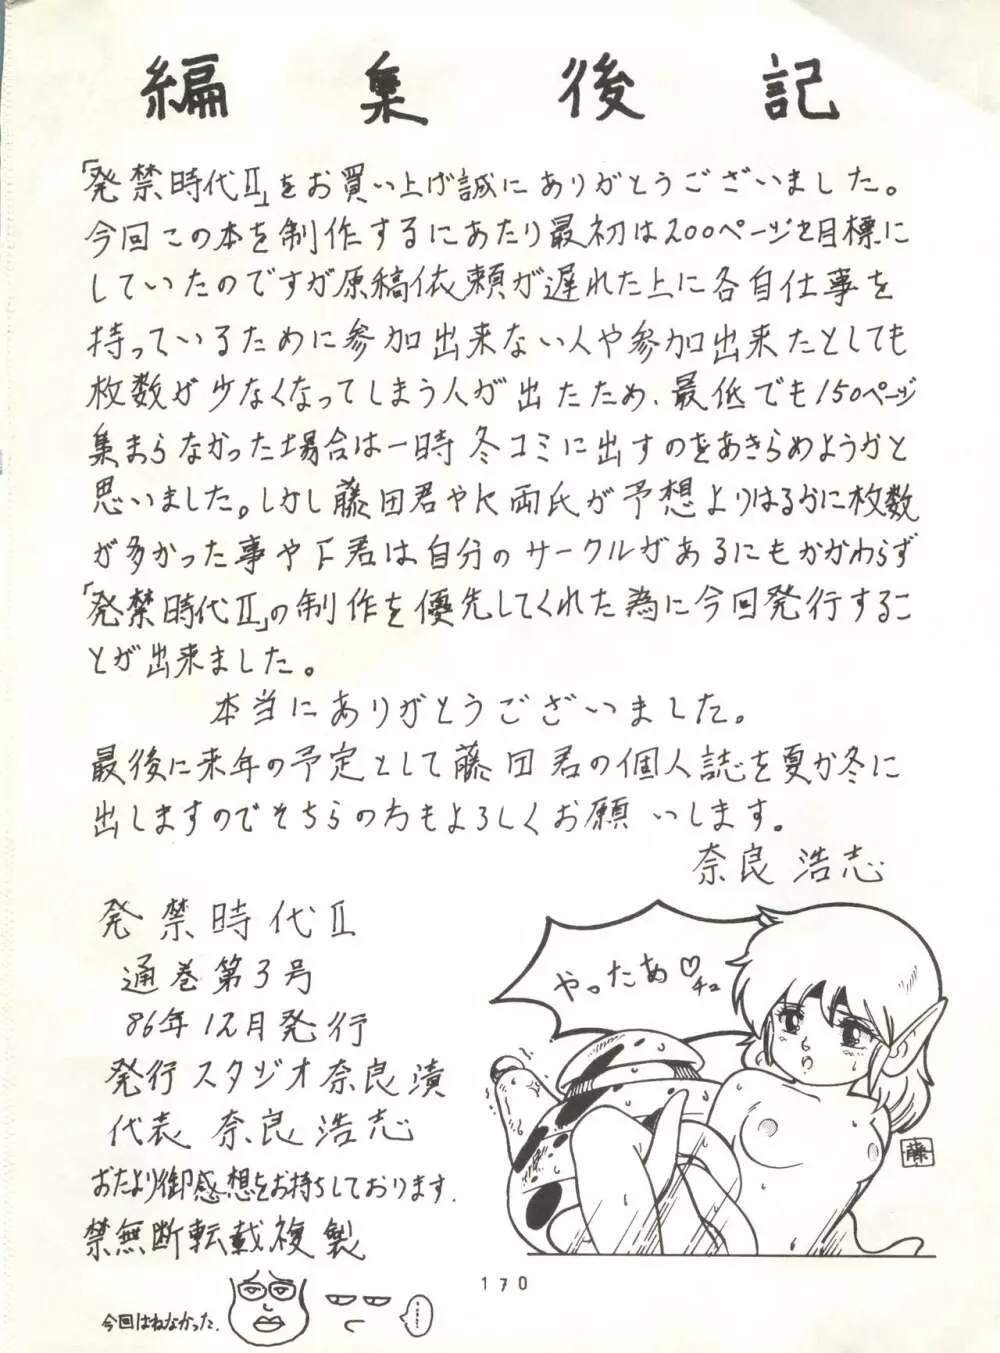 編集後記
「発禁時代Ⅱ」をお買い上げ誠にありがとうございました。
今回この本を制作するにあたり最初は200ページを目標に
していたのですが原稿依頼が遅れた上に各自仕事を
持っているために参加出来ない人や参加出来たとしても
枚数が少なくなってしまう人が出たため、最低でも150ページ
集まらなかった場合は一時冬コミに出すのをあきらめようかと
思いました。しかし藤田君やK両氏が予想よりはるかに枚数
が多かった事やF君は自分のサークルがあるにもかかわらず
「発禁時代Ⅱ」の制作を優先してくれた為に今回発行するこ
とが出来ました。
本当にありがとうございました。
最後に来年の予定として藤田君の個人誌を夏か冬に
出しますのでそちらの方もよろしくお願いします。
奈良浩志
発禁時代Ⅱ
通巻第3号
86年12月発行
発行スタジオ奈良漬
代表 奈良浩志
おたより御感想をお持ちしております.
禁無断転載複製
やったあ♡チュ
藤
170
今回はねなかった.